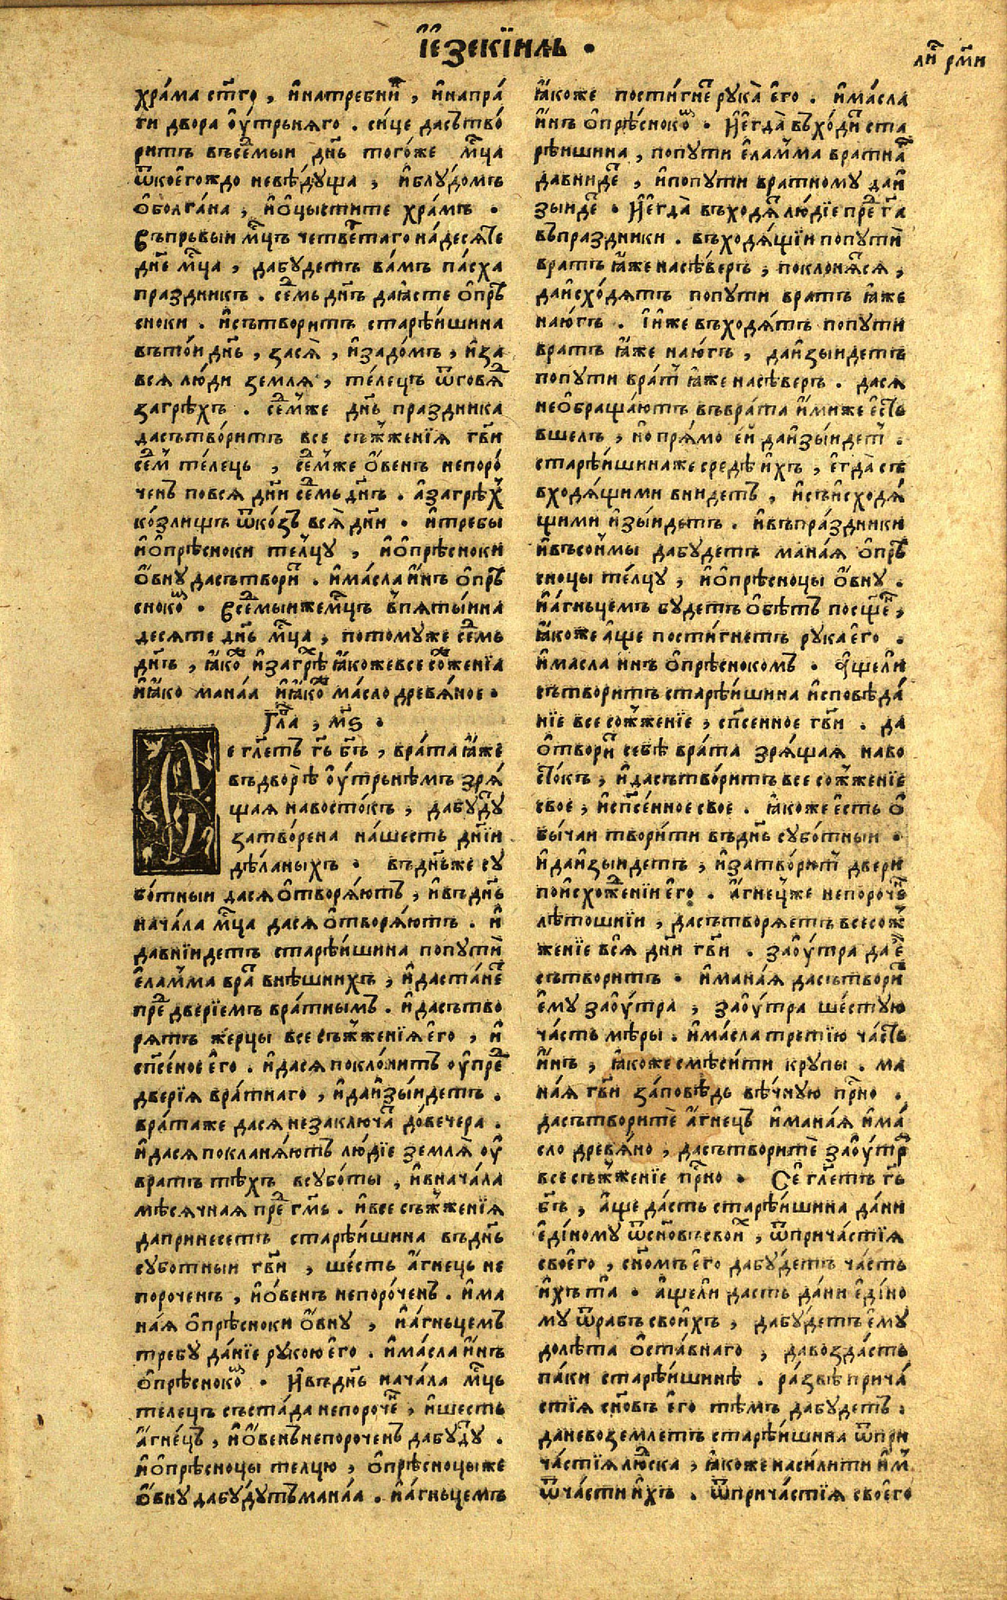 І҆е҆зекїилъ •
ли́ рм҃и
хра́ма ст҃го , и҆натребни́ , и҆напра́
ги двора ѹ҆́трьняго . си́це дасътво́
ритъ въсе́мыи дн҃ь того́же мц҃а
ѿкое҆гождо невѣ́дуща , и҆блу́домъ
ѻ҆болга́на , и҆ѻ҆цы́стите храмъ •
Въпрьвыи мц҃ъ четве́таго на́десѧте
дн҃е мц҃а , дабу́детъ ва́мъ па́сха
праздникъ . се́мь дн҃ъ даꙗ҆сте ѻ҆прѣ
сноки . и҆сътворитъ старѣ́ишина
въто́и дн҃ь , засѧ̀ , и҆задо́мъ , и҆за
всѧ лю́ди земля̀ , те́лецъ ѿговѧ́
загрѣхъ . се́мже дн҃ь праздника
дасътво́ритъ все съжже́нїѧ гв҃и
се́м те́лець , се́мже ѻ҆́венъ непоро́
ченъ повсѧ дн҃и се́мь дн҃ъ . а҆загрѣ́х
ко́злищъ ѿко́зъ всѧ̀ дн҃и • и҆требы
и҆ѻ҆прѣ́сноки телцу , и҆ѻ҆прѣ́сноки
ѻ҆́вну дасътвори́ . и҆ма́сла и҆́нъ ѻ҆прѣ
сноко́ • Всемыижемц҃ъ в҆пѧты́ина
десѧте дн҃ь мц҃а , потомуже се́мь
дн҃ъ , ꙗ҆́ко и҆загрѣ ꙗ҆́кожевсе сожже́нїа
и҆ꙗ҆́ко манаа и҆ꙗ҆́ко ма́сло древѧ́ное •
Гл҃а , м҃ѕ •
Се гл҃етъ гь҃ бг҃ъ , врата ꙗ҆́же
въдворѣ ѹ҆́трьнѣмъ зрѧ́
щаѧ навосто́къ , дабу́ду
затво́рена на́шесть дн҃іи
дѣ́ланыхъ • въдн҃ьже су
бо́тныи дасѧ ѻ҆творѧ́ютъ , и҆въдн҃ь
нача́ла мц҃а дасѧ ѻ҆творѧ́ютъ . и҆
давни́идетъ старѣ́ишина попутѝ
е҆ла́мма вра́ внѣ́шнихъ , и҆даста́не
пре́ две́рїемъ вра́тнымъ . и҆дасътво
рѧтъ же́рцы все съжже́нїѧ е҆го , и҆
спс҃е́ное е҆го . и҆дасѧ покло́нитъ ѹ҆пре́
дверїѧ вра́тнаго , и҆даи҆зы́идетъ .
вра́таже дасѧ незаключа́ до́вечера .
и҆дасѧ покланѧ́ютъ лю́дїе земля̀ ѹ҆
вратъ тѣхъ всубо́ты , и҆внача́ла
мѣ́сѧчнаѧ пре́ гм҃ь . и҆все съжже́нїѧ
дапринесетъ старѣ́ишина въдн҃ь
субо́тныи гв҃и , ше́сть а҆́гнець не
пороченъ , и҆ѻ҆́венъ непоро́ченъ . и҆ма
на́ѧ ѻ҆прѣ́сноки ѻ҆́вну , и҆а҆́гньцемъ
требу да́нїе рукою е҆го . и҆ма́сла и҆́нъ
ѻ҆прѣ́сноко́ • И҆въдн҃ь нача́ла мц҃ь
телецъ съста́да непоро́че , и҆шесть
а҆́гне́цъ , и҆ѻ҆́венъ непороченъ дабу́ду .
и҆ѻ҆прѣ́сноцы телцю , ѻ҆прѣ́сноцы же
ѻ҆́вну дабу́дутъ мана́а . и҆а҆́гньцемъ
ꙗ҆́коже пости́гне рука̀ е҆го . и҆ма́сла
и҆́нъ ѻ҆прѣ́сноко́ • И҆е҆гда̀ въхо́ди ста
рѣ́ишина , попути е҆ла́мма вратна́
давни́де , и҆попути вратному даи҆
зыиде • И҆е҆гда̀ въходѧ́ лю́дїе пре́ га҃
въпра́здники . въходѧ́щїи попутѝ
вратъ ꙗ҆́же насѣ́веръ , поклонѧ́сѧ ,
даи҆схо́дѧтъ попути вратъ ꙗ҆́же
наю́гъ . І҆и҆же въходѧ́тъ попути
вратъ ꙗ҆́же наю́гъ , даи҆зы́идетъ
попути врат ꙗ҆́же насѣ́веръ . дасѧ
неѻ҆браща́ютъ въврата и҆́миже е҆сть
вшелъ , но прѧ́мо ей даи҆зы́идет .
старѣ́ишинаже средѣ̀ и҆́хъ , е҆гда̀ съ
входѧ́щими внидетъ , и҆съи҆сходѧ́
щими и҆зы́идетъ . и҆въпра́здники
и҆въсои҆́мы дабу́детъ мана́ѧ ѻ҆прѣ
сноцы те́лцу , и҆ѻ҆прѣ́сноцы ѻ҆́вну .
и҆а҆́гньцемъ бу́детъ ѻ҆бѣтъ посще́ ,
ꙗ҆́коже а҆ще пости́гнетъ рука е҆го .
и҆масла и҆нъ ѻ҆прѣ́снокомъ . А҆щели
сътворитъ старѣ́ишина и҆сповѣ́да́
нїе все сожже́нїе , спс҃енное гв҃и . да
ѻ҆твори́ себѣ врата зрѧ́щаѧ наво
сто́къ , и҆дасътво́ритъ все сожже́нїе
свое , и҆спс҃е́нное свое . ꙗ҆́коже е҆сть ѻ҆
бы́чаи твори́ти въдн҃ь субо́тныи •
и҆даи҆зыидетъ , и҆затвори́т двери
пои҆схоже́нїи е҆го . а҆́гнецже непоро́че
лѣ́тошнїи , дасътворѧ́етъ всесож
женїе всѧ дн҃и гв҃и . заѹ҆́тра да е҆
сътворитъ • и҆мана́ѧ дасътвори́
е҆му заѹ҆́тра , заѹ҆́тра ше́стую
ча́сть мѣ́ры . и҆ма́сла третїю ча́сть
и҆́нъ , ꙗ҆́коже смѣси́ти крупы . ма
на́ѧ гв҃и за́повѣдь вѣ́чную пр҃но .
дасътворитѐ а҆́гнецъ и҆мана́ѧ и҆ма́
сло древѧ́но , дасътворитѐ заѹ҆́тр
все съжже́нїе пр҃но • Се҆ гл҃етъ гь҃
бг҃ъ , а҆́ще да́сть старѣ́ишина да́ни
е҆ди́ному ѿсн҃овъ свои́ , ѿприча́стїѧ
свое҆го , сн҃омъ е҆го дабу́детъ ча́сть
и҆́хъ та . а҆щели дасть да́ни е҆ди́но
му ѿрабъ свои҆хъ , дабу́детъ е҆му
долѣта ѻ҆ста́внаго , давозда́стъ
па́ки старѣ́ишинѣ . ра́звѣ прича́
стїѧ сн҃овъ его тѣмъ дабу́детъ .
даневоземлетъ старѣ́ишина ѿпри
ча́стїѧ лю́ска , ꙗ҆́коже наси́лити и҆м
ѿча́сти и҆хъ . ѿприча́стїѧ свое҆го